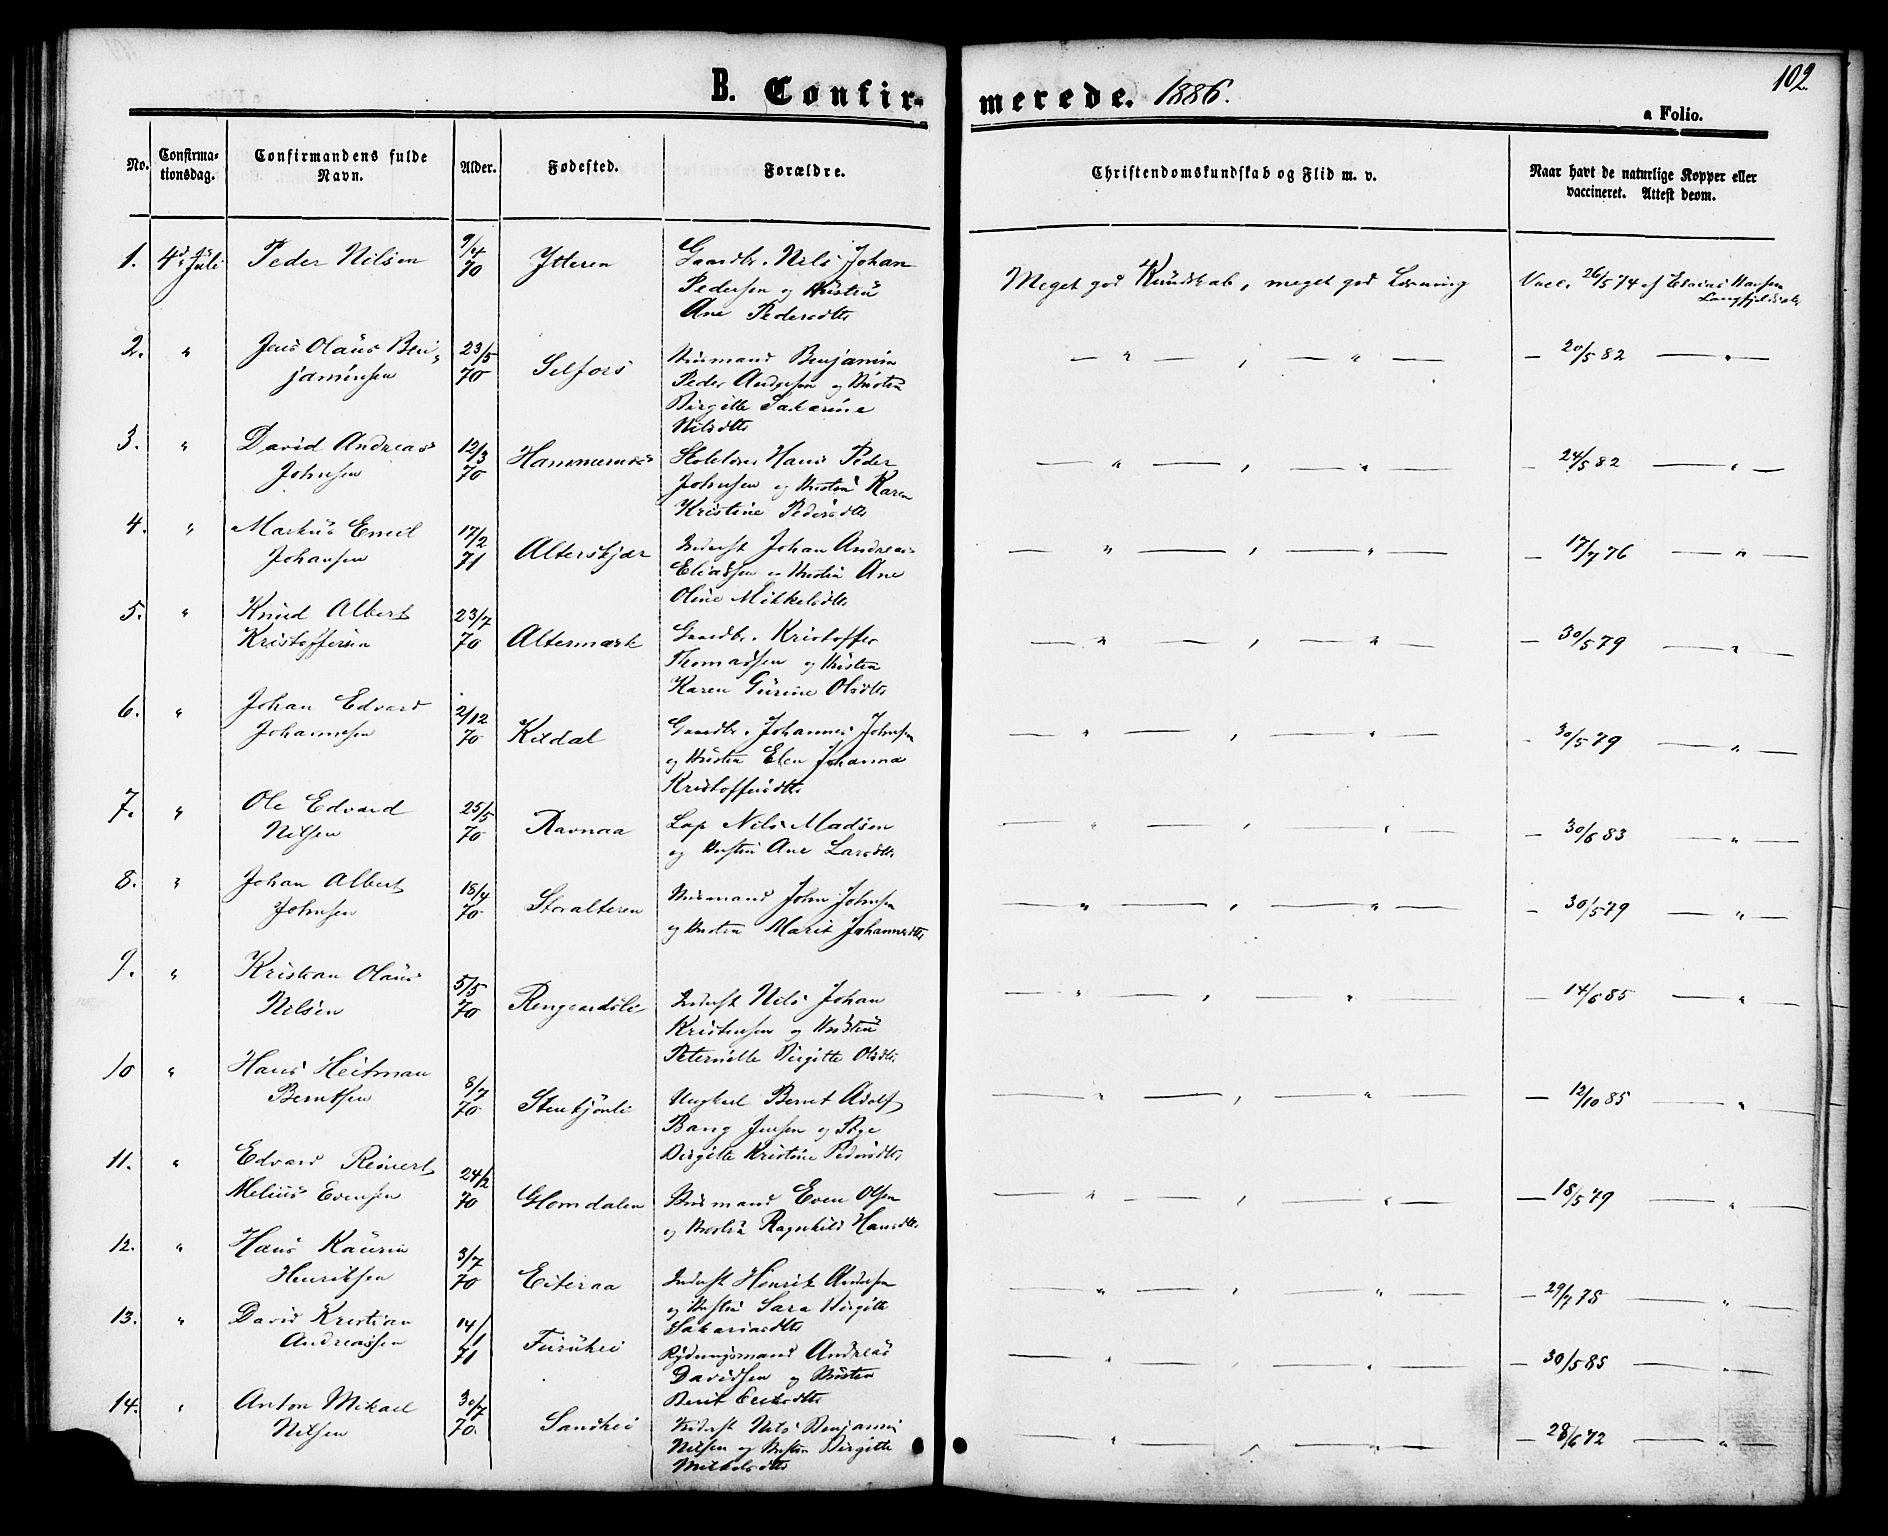 102.
B. Confirmerede. 1886.
a Folio.
No. Confirmationsdag. Confirmandens fulde Navn. Alder. Fødested. Forældre. Christendomskundskab og Flid m. v. Naar havt de naturlige Kopper eller vaccineret. Attest derom.
1. 4de Juli Peder Nilsen 9/4 70 Ytteren Gaardbr. Nils Johan
Pedersen og Hustru
Ane Pedersdtr
Meget god Kundskab, meget god Læsning Vacc. 26/5 74 af Hansen
2. " Jens Olaus Ben-
jaminsen 23/5 70 Selfors Husmand Benjamin
Peder Andersen og Hustru
Birgitte Sakarine
Nilsdtr
— " — , — " — — 20/5 82 — " —
3. " David Andreas
Johnsen 12/3 70 Hammernes Hans Peder
Johnsen og Hustru Karen
Kristine Pedersdtr
— " — , — " — — 24/5 82 — " —
4. " Markus Emil
Johansen 17/2 71 Alterskjær Inderst Johan Andreas
Eliassen og Hustru Ane
Oline Mikkelsdtr
— " — , — " — — 17/7 76 — " —
5. " Knud Albert
Kristoffersen 23/7 70 Altermark Gaardbr. Kristoffer
Thomassen og Hustru
Karen Gurine Olsdtr
— " — , — " — — 30/5 79 — " —
6. " Johan Edvard
Johannesen 2/12 70 Kildal Gaardbr. Johannes Johnsen
og Hustru Elen Johanna
Kristoffersdtr
— " — , — " — — 30/5 79 — " —
7. " Ole Edvard
Nilsen 25/5 70 Ravnaa Lap Nils Madsen
og Hustru Ane Larsdtr
— " — , — " — — 30/6 83 — " —
8. " Johan Albert
Johnsen 18/4 70 Storalteren Husmand John Johnsen
og Hustru Marit Johannesdtr
— " — , — " — — 30/5 79 — " —
9. " Kristian Olaus
Nilsen 5/5 70 Rengaardsli Inderst Nils Johan
Kristensen og Hustru
Peternille Birgitte Olsdtr
— " — , — " — — 14/6 85 — " —
10 " Hans Heitman
Berntsen 8/7 70 Ungkarl Bernt Adolf
Bang Jensen og Pige
Birgitte Kristine Pedersdtr
— " — , — " — — 12/10 85 — " —
11. " Edvard Reinert
Melius Evensen 24/2 70 Glomdalen Husmand Even Olsen
og Hustru Ragnhild Hansdtr
— " — , — " — — 18/5 79 — " —
12. " Hans Kaurin
Henriksen 3/7 70 Eiteraa Inderst Henrik Andersen
og Hustru Sara Birgitte
Sakariasdtr
— " — , — " — — 29/7 78 — " —
13. " David Kristian
Andreassen 14/1 71 Furuhei Rydningsmand Andreas
Davidsen og Hustru
Berit Eriksdtr
— " — , — " — — 30/5 85 — " —
14. " Anton Mikael
Nilsen 30/7 70. Sandhei Inderst Nils Benjamin
Nilsen og Hustru Birgitte
Mikkelsdtr
— " — , — " — — 28/6 72 — " —